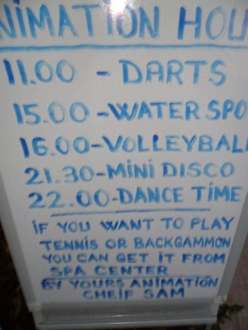 ANIMATION HOU
11.00 - DARTS
15.00 - WATER SPO
16.00 - VOLLEYBALL
21.30 - MINI DISCO
22.00 - DANCE TIME
IF YOU WANT TO PLAY
TENNIS OR BACKGAMMON
YOU CAN GET IT FROM
SPA CENTER
BY YOURS ANIMATION
CHEIF SAM